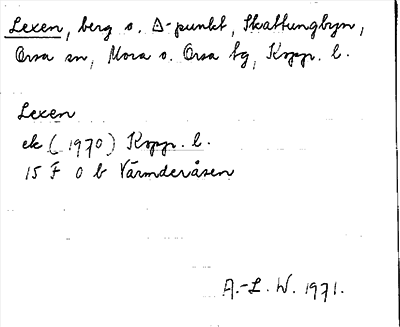 Lexen, berg o. Δ-punkt, Skattungbyn,
Orsa sn, Mora o. Orsa tg, Kopp. l.
Lexen
ek (1970) Kopp. l.
15 F 0 b Värmderåsen
A.-L. W. 1971.